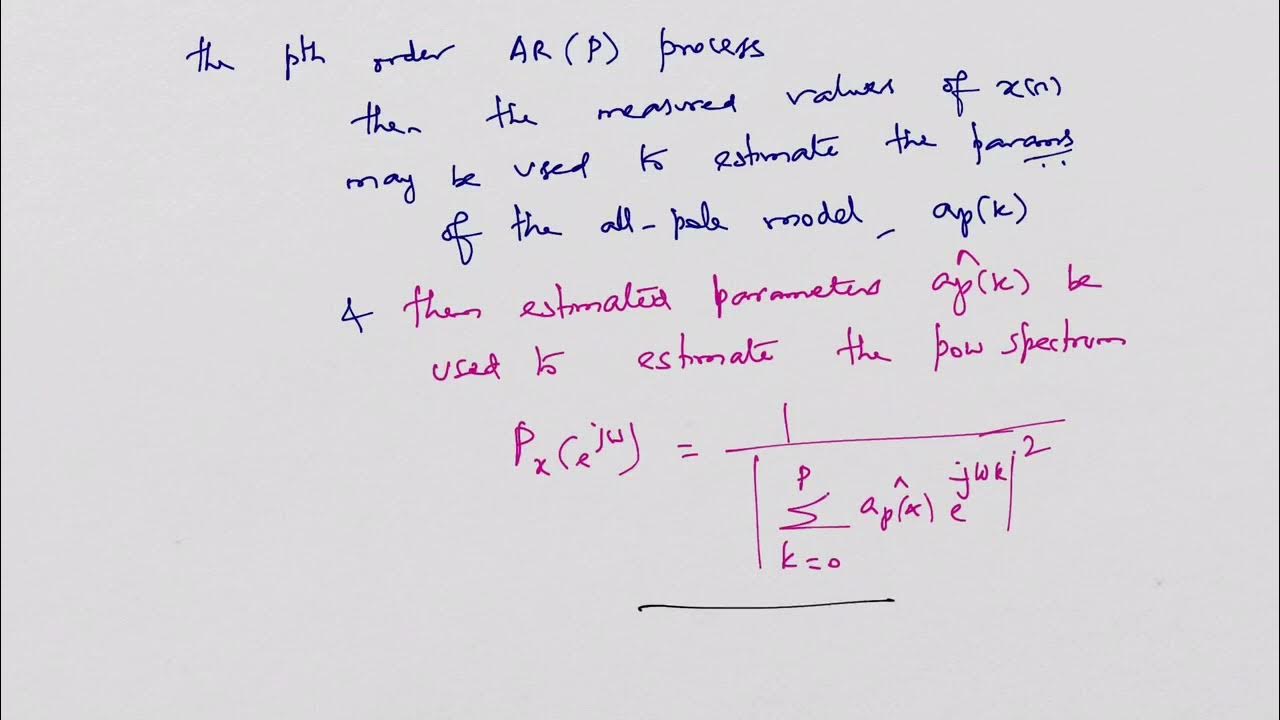 the pth order AR(P) process
then the measured values of x(n)
may be used to estimate the params
of the all-pole model, ap(k)
& then estimated parameters âp(k) be
used to estimate the pow spectrum
Px(e^jω) = 1 / |Σ_{k=0}^{p} âp(k) e^{-jωk}|^2